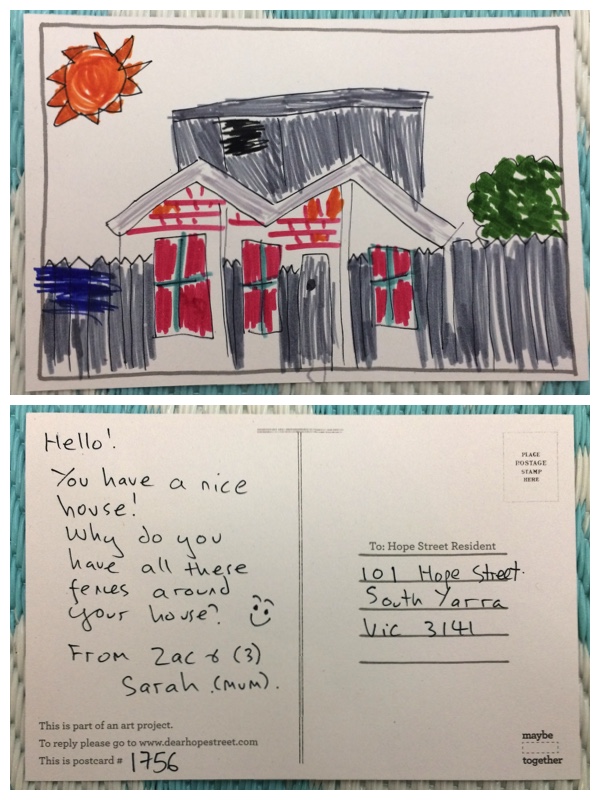 Hello!
You have a nice
house!
Why do you
have all these
fences around
your house?
From Zac & (3)
Sarah (mum).
This is part of an art project.
To reply please go to www.dearhopestreet.com
This is postcard # 1756
PLACE
POSTAGE
STAMP
HERE
To: Hope Street Resident
101 Hope Street.
South Yarra
Vic 3141
maybe
together